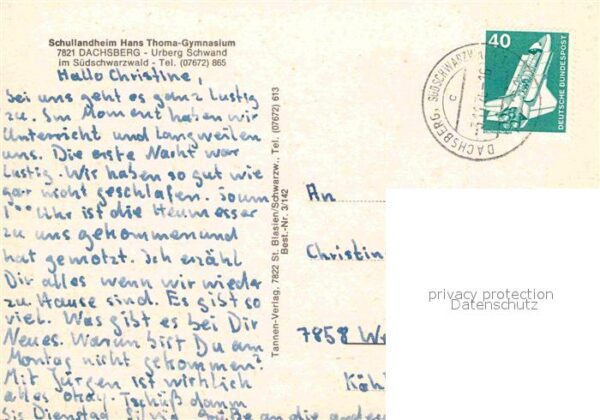 Schullandheim Hans Thoma-Gymnasium
7821 DACHSBERG - Urberg Schwand
im Südschwarzwald - Tel. (07672) 865
Hallo Christine,
bei uns geht es ganz lustig
zu. Im Moment haben wir
Unterricht und langweilen
uns. Die erste Nacht war
lustig. Wir haben so gut wie
gar nicht geschlafen. So um
1 Uhr ist die Heumesser
zu uns gekommen und
hat gemotzt. Ich erzähl
Dir alles wenn wir wieder
zu Hause sind. Es gibt so
viel. Was gibt es bei Dir
Neues. Warum bist Du am
Montag nicht gekommen?
Mit Jürgen ist wirklich
alles okay. Tschüß dann
bis Dienstag Silvia Grüße an die andern
Tannen-Verlag, 7822 St. Blasien/Schwarzw., Tel. (07672) 613
Best.-Nr. 3/142
40
DEUTSCHE BUNDESPOST
DACHSBERG, SÜDSCHWARZW
c
An
Christin
7858 We
privacy protection
Datenschutz